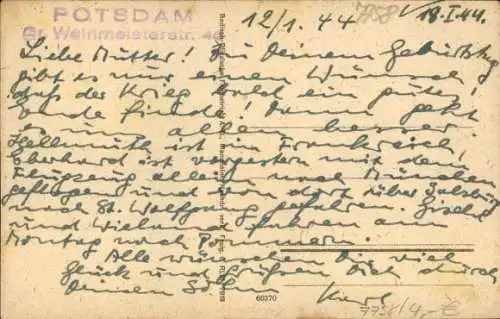 POTSDAM
Gr. Weinmeisterstr. 46
12/1. 44
7758
18.I.44.
Liebe Mutter! Zu Deinem Geburtstag
gibt es nur einen Wunsch
daß der Krieg bald ein gutes
Ende finde! Dann geht
es uns allen besser.
Hellmuth ist in Frankreich,
Eberhard ist vorgestern mit dem
Flugzeug allein nach München
geflogen und von dort über Salzburg
nach St. Wolfgang gefahren. Gisela
und Wieland fahren am
Montag nach Pommern.
Alle wünschen Dir viel
Glück und grüßen Dich durch
Deinen Sohn Kurt
60370
7758/4,- €